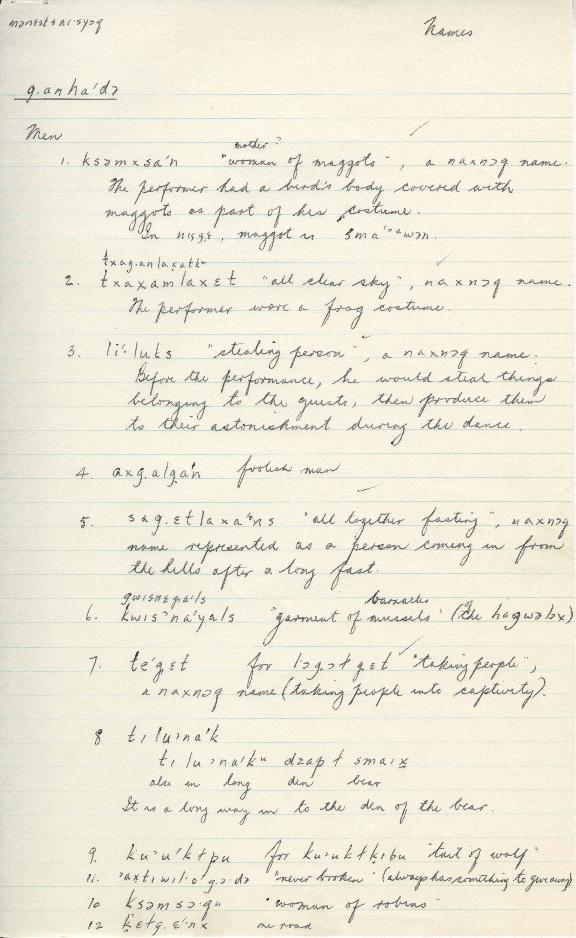 Names
g.anha'də
Men
mother?
1. ksəmxsa'n "woman of maggots", a naxnɔq name.
The performer had a bird's body covered with
maggots as part of his costume.
In nisqɛ, maggot is
txag.anlaxatkᵘ
2. txaxamlaxɛt "all clear sky", naxnɔq name.
The performer wore a frog costume.
3. li·luks "stealing person", a naxnɔq name.
Before the performance, he would steal things
belonging to the guests, then produce them
to their astonishment during the dance.
4. axg.alga'n foolish man
5. sag.ɛtlaxa'ns "all together fasting", naxnɔq
name represented as a person coming in from
the hills after a long fast.
barnacles
6. kwisɔna'yals "garment of mussels" (the hagwəlɔx)
7. te'gɛt for "taking people",
a naxnɔq name (taking people into captivity).
8 tɩlu'na'k
tɩluɔna'kᵘ dzapɫ smaɩx
also in long den bear
It is a long way in to the den of the bear.
9. for "tail of wolf"
11. "never broken" (always has something to give away)
10 ksəmsɔ·qu "woman of robins"
12 one road